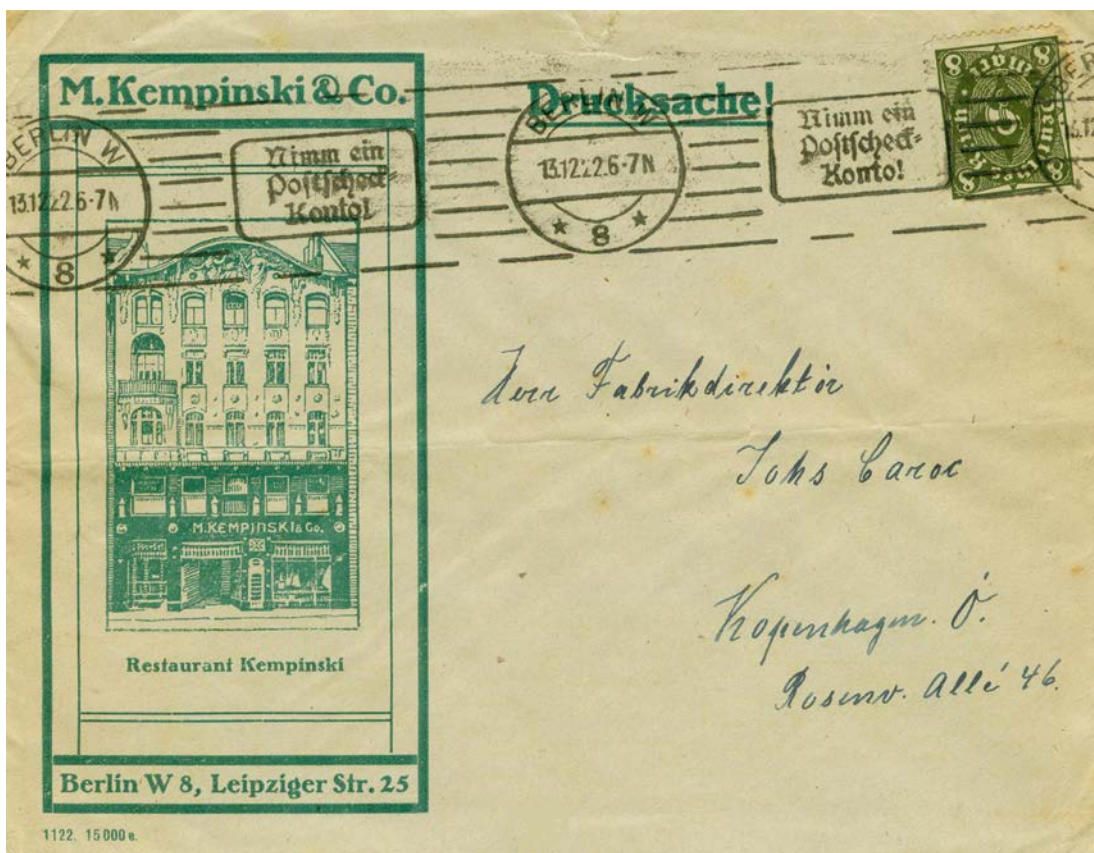 M. Kempinski & Co.
Drucksache!
BERLIN W
13.12.22.6-7N
* 8 *
Nimm ein
Postscheck-
Konto!
BERLIN W
13.12.22.6-7N
* 8 *
Nimm ein
Postscheck-
Konto!
8 8
Mark
Deutsches
Reich
8 8
M.KEMPINSKI & Co.
Restaurant Kempinski
Berlin W 8, Leipziger Str. 25
1122. 15000 e.
Herr Fabrikdirektör
Johs Caroc
Kopenhagen. Ö.
Rosenv. Allé 46.